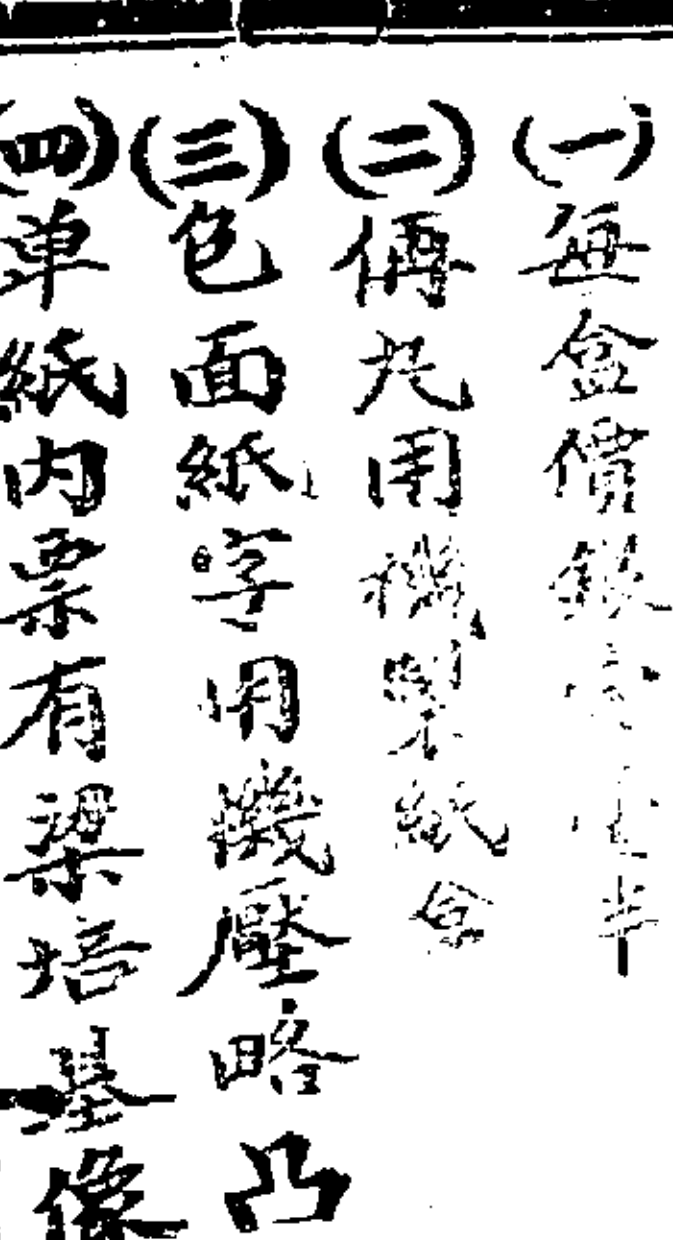 (一)每盒價銀半
(二)俱用機製紙盒
(三)色面紙字用機壓略凸
(四)單紙内票有梁培基像